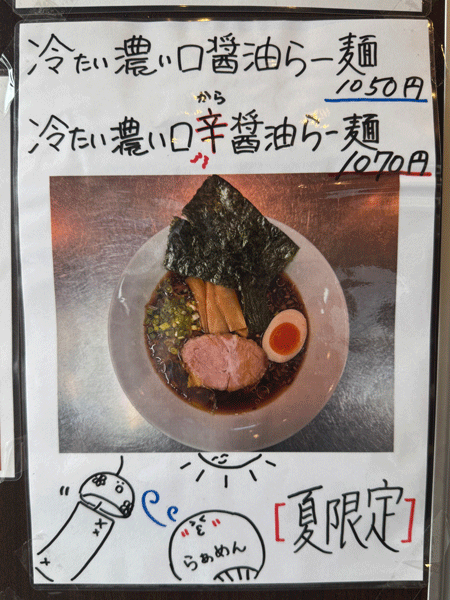 冷たい濃い口醤油らー麺
1050円
から
冷たい濃い口辛醤油らー麺
1070円
らぁめん
[夏限定]